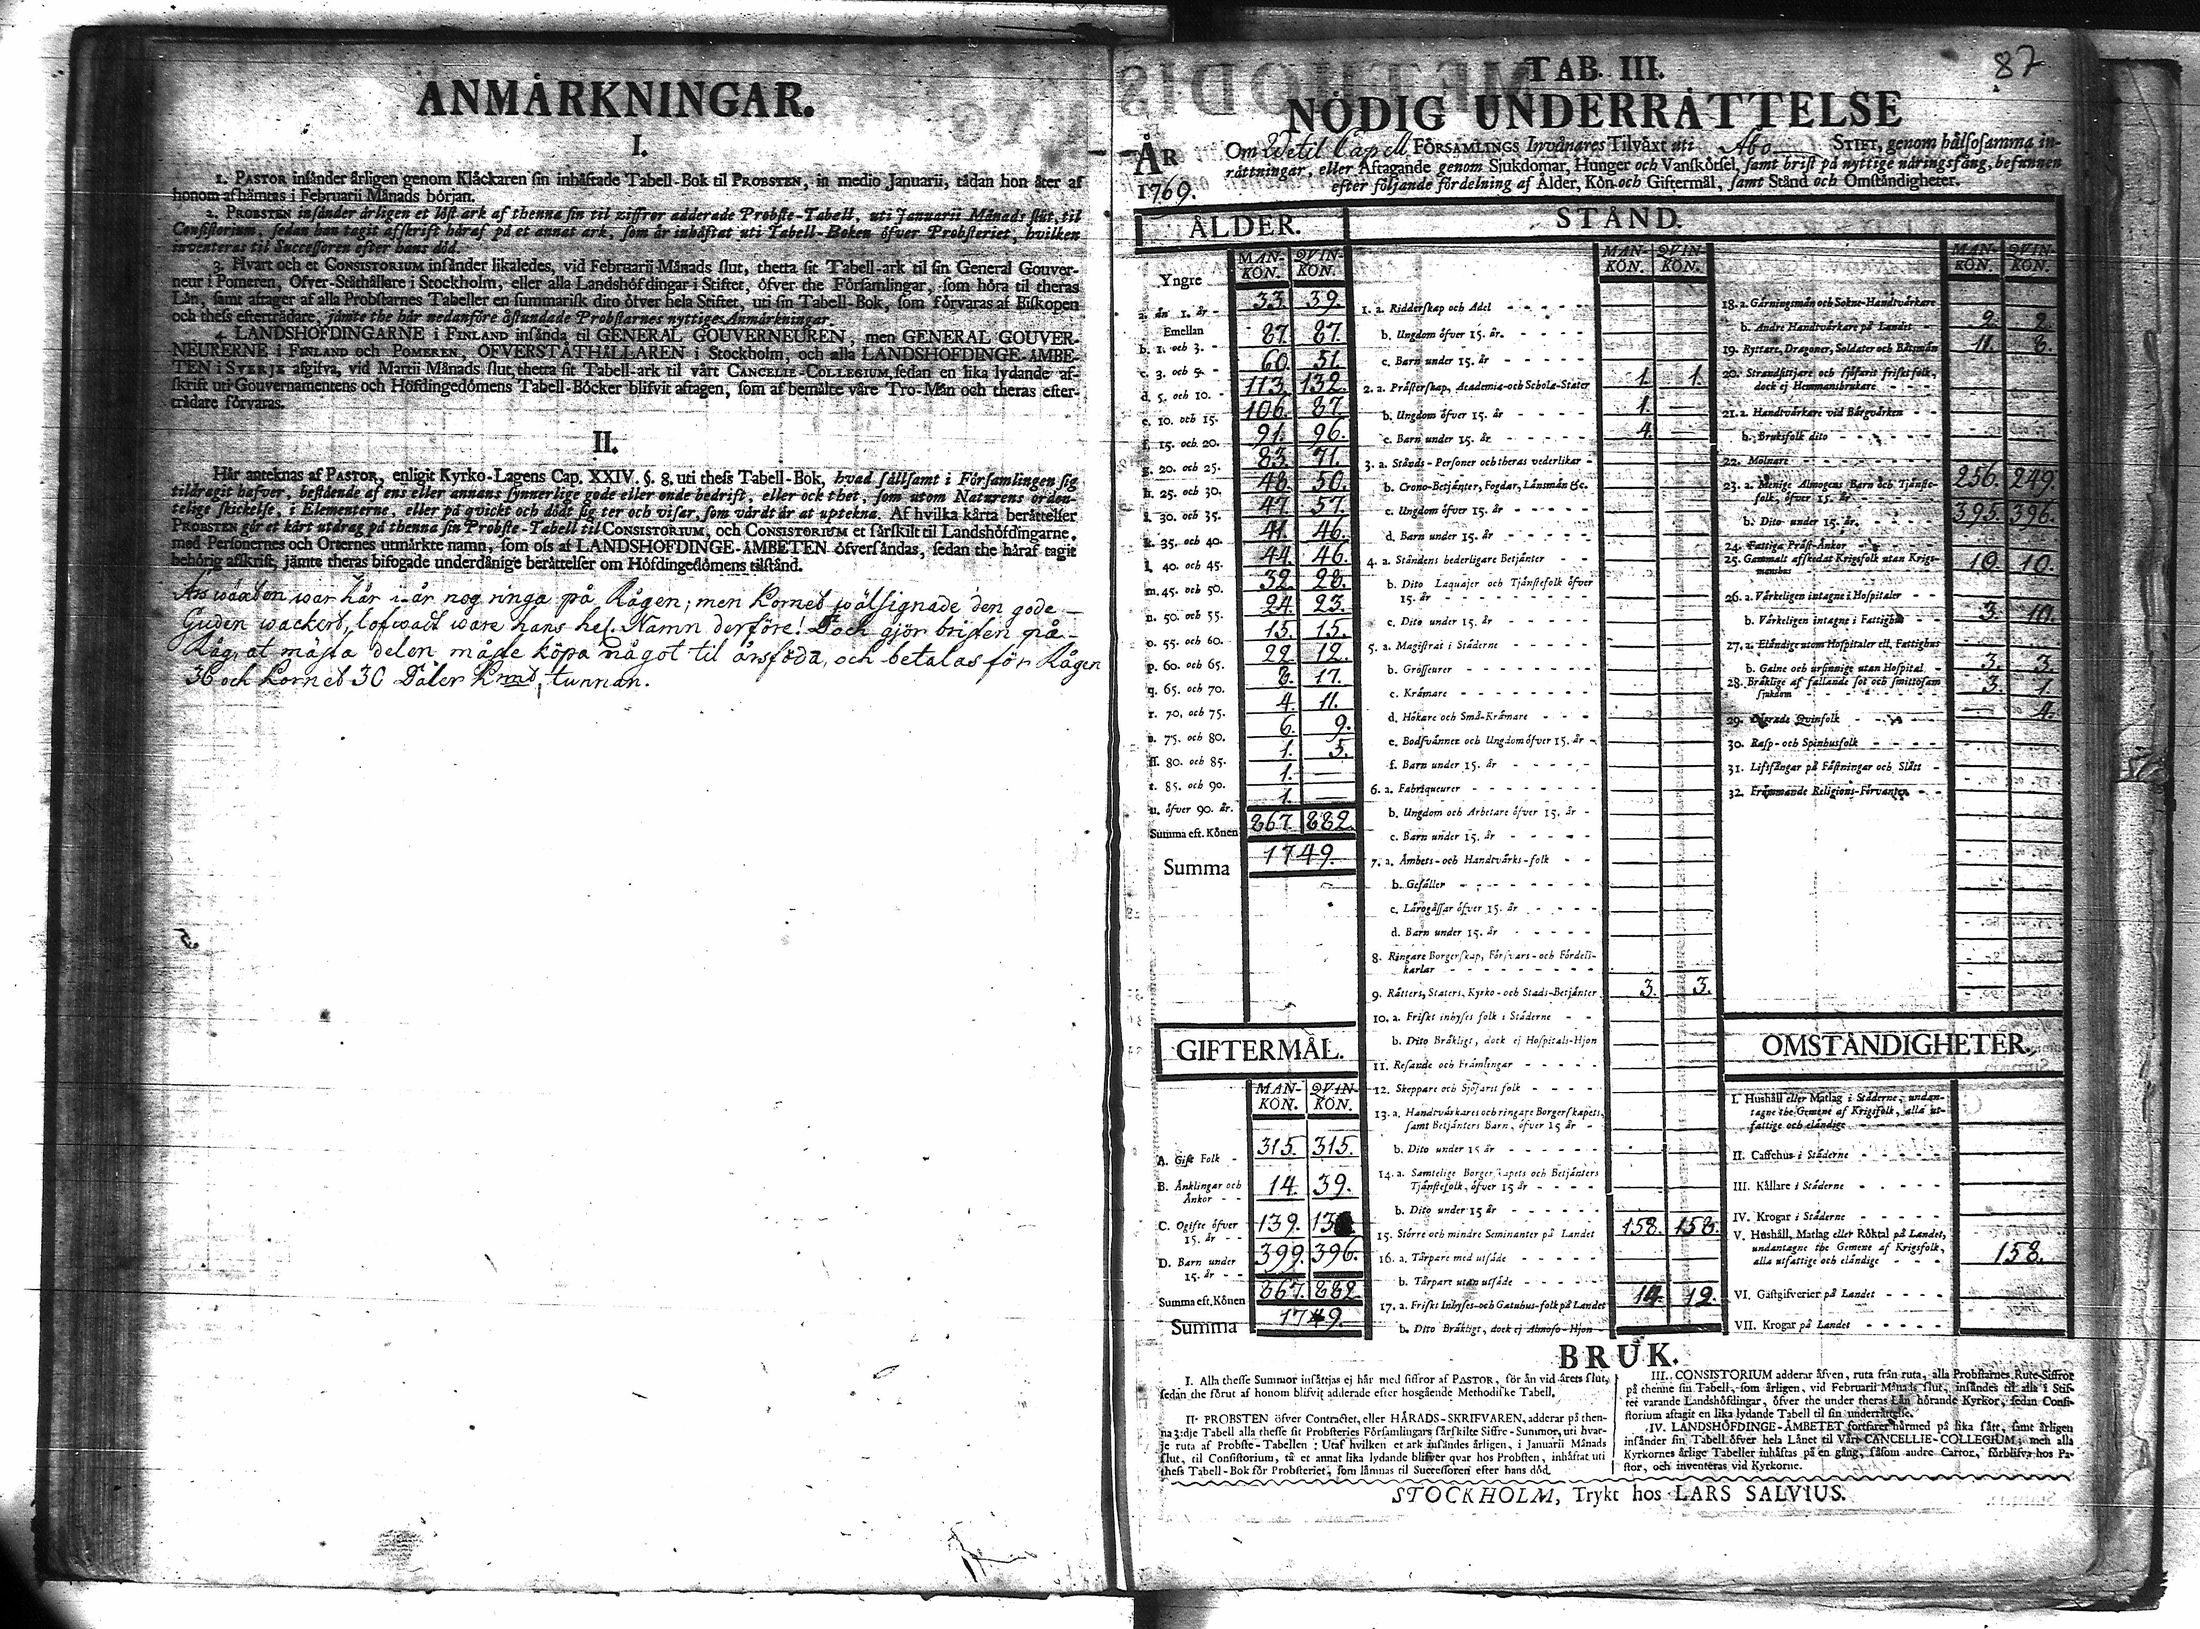 ANMÄRKNINGAR.
I.
1. PASTOR insänder årligen genom Klåckaren sin inhäftade Tabell-Bok til PROBSTEN, in medio Januarii, tådan hon åter af
honom afhämtas i Februarii Månads början.
2. PROBSTEN insänder årligen et löst ark af thenna sin til ziffror adderade Probste-Tabell, uti Januarii Månads slut, til
Consistorium, sedan han tagit afskrift häraf på et annat ark, som är inhäftat uti Tabell-Boken öfver Probsteriet, hvilken
inventeras til Successoren efter hans död.
3. Hvart och et CONSISTORIUM insänder likaledes, vid Februarii Månads slut, thetta sit Tabell-ark til sin General Gouver-
neur i Pomeren, Öfver-Ståthållare i Stockholm, eller alla Landshöfdingar i Stiftet, öfver the Församlingar, som höra til theras
Län, samt aftager af alla Probstarnes Tabeller en summarisk dito öfver hela Stiftet, uti sin Tabell-Bok, som förvaras af Biskopen
och thess efterträdare, jämte the här nedanföre åstundade Probstarnes nyttiga Anmärkningar.
4. LANDSHÖFDINGARNE i FINLAND insända til GENERAL GOUVERNEUREN, men GENERAL GOUVER-
NEURERNE i FINLAND och POMEREN, ÖFVERSTÅTHÅLLAREN i Stockholm, och alla LANDSHÖFDINGE-ÄMBE-
TEN i SVERJE afgifva, vid Martii Månads slut, thetta sit Tabell-ark til vårt CANCELIE-COLLEGIUM, sedan en lika lydande af-
skrift uti Gouvernamentens och Höfdingedömens Tabell-Böcker blifvit aftagen, som af bemälte våre Tro-Män och theras efter-
trädare förvaras.
II.
Här anteknas af PASTOR, enligit Kyrko-Lagens Cap. XXIV. §. 8, uti thess Tabell-Bok, hvad sällsamt i Församlingen sig
tildragit hafver, bestående af ens eller annans synnerlige gode eller onde bedrift, eller ock thet, som utom Naturens orden-
telige skickelse, i Elementerne, eller på qvickt och dödt sig ter och visar, som värdt är at uptekna. Af hvilka korta berättelser
PROBSTEN gör et kårt utdrag på thenna sin Probste-Tabell til CONSISTORIUM, och CONSISTORIUM et särskilt til Landshöfdingarne,
med Personernes och Orternes utmärkte namn, som oss af LANDSHÖFDINGE-ÄMBETEN öfversändas, sedan the häraf tagit
behörig afskrift, jämte theras bifogade underdånige berättelser om Höfdingedömens tilstånd.
Årswäxten war här i år nog ringa på Rågen; men Kornet wälsignade den gode
Guden wackert, lofwadt ware hans hel. Namn derföre! Doch gjör bristen på
Råg, at mästa delen måste köpa något til årsföda, och betalas för Rågen
36 och Kornet 30 Daler Kmt, tunnan.
87
TAB. III.
NÖDIG UNDERRÄTTELSE
ÅR 1769.
Om Wetil Capell FÖRSAMLINGS Invånares Tilväxt uti Åbo STIFT, genom hälsosamma in-
rättningar, eller Aftagande genom Sjukdomar, Hunger och Vanskötsel, samt brist på nyttige näringsfång, befunnen
efter följande fördelning af Ålder, Kön och Giftermål, samt Stånd och Omständigheter.
ÅLDER.
MAN-KÖN. QVIN-KÖN.
Yngre
a. än 1. år - 33. 39.
Emellan
b. 1. och 3. - 87. 87.
c. 3. och 5. - 60. 51.
d. 5. och 10. - 113. 132.
e. 10. och 15. 106. 87.
f. 15. och 20. 91. 96.
g. 20. och 25. 83. 71.
h. 25. och 30. 48. 50.
i. 30. och 35. 47. 57.
k. 35. och 40. 41. 46.
l. 40. och 45. 44. 46.
m. 45. och 50. 32. 28.
n. 50. och 55. 24. 23.
o. 55. och 60. 15. 15.
p. 60. och 65. 22. 12.
q. 65. och 70. 8. 17.
r. 70. och 75. 4. 11.
s. 75. och 80. 6. 9.
ss. 80. och 85. 1. 5.
t. 85. och 90. 1. —
u. öfver 90. år. 1. —
Summa eft. Könen 867. 882.
Summa 1749.
GIFTERMÅL.
MAN-KÖN. QVIN-KÖN.
A. Gift Folk - 315. 315.
B. Änklingar och Änkor - - 14. 39.
C. Ogifte öfver 15. år - - 139.
D. Barn under 15. år - - 399. 396.
Summa eft. Könen 867. 882
Summa 1749.
STÅND.
MAN-KÖN. QVIN-KÖN.
1. a. Ridderskap och Adel
b. Ungdom öfver 15. år.
c. Barn under 15. år
2. a. Prästerskap, Academiæ-och Scholæ-Stater 1. 1.
b. Ungdom öfver 15. år 1. —
c. Barn under 15. år 4. —
3. a. Stånds-Personer och theras vederlikar
b. Crono-Betjänter, Fogdar, Länsmän &c.
c. Ungdom öfver 15. år
d. Barn under 15. år
4. a. Ståndens hederligare Betjänter
b. Dito Laquajer och Tjänstefolk öfver 15. år
c. Dito under 15. år
5. a. Magistrat i Städerne
b. Grosseurer
c. Krämare
d. Hökare och Små-Krämare
e. Bodsvänner och Ungdom öfver 15. år
f. Barn under 15. år
6. a. Fabriqueurer
b. Ungdom och Arbetare öfver 15. år
c. Barn under 15. år
7. a. Ämbets-och Handtvärks-folk
b. Gesäller
c. Lärogässar öfver 15. år
d. Barn under 15. år
8. Ringare Borgerskap, Försvars-och Fördels-karlar
9. Rätters, Staters, Kyrko-och Stads-Betjänter 3. 3.
10. a. Friskt inhyses folk i Städerne
b. Dito Bräkligt, dock ej Hospitals-Hjon
11. Resande och Främlingar
12. Skeppare och Sjöfarit folk
13. a. Handtvärkares och ringare Borgerskapets, samt Betjänters Barn, öfver 15 år
b. Dito under 15 år
14. a. Samtelige Borgerskapets och Betjänters Tjänstefolk, öfver 15 år
b. Dito under 15 år
15. Större och mindre Seminanter på Landet 158. 158.
16. a. Tårpare med utsäde
b. Tårpare utan utsäde
17. a. Friskt Inhyses-och Gatuhus-folk på Landet 14. 12.
b. Dito Bräkligt, dock ej Almoso-Hjon
MAN-KÖN. QVIN-KÖN.
18. a. Gärningsmän och Sokne-Handtvärkare
b. Andre Handtvärkare på Landet 2. 2.
19. Ryttare, Dragoner, Soldater och Båtsmän 11. 8.
20. Strandsittjare och sjöfarit friskt folk, dock ej Hemmansbrukare
21. a. Handtvärkare vid Bärgvärken
b. Bruksfolk dito
22. Mölnare
23. a. Menige Almogens Barn och Tjänstefolk, öfver 15. år 256. 249.
b. Dito under 15. år. 395. 396.
24. Fattiga Präst-Änkor
25. Gammalt afskedat Krigsfolk utan Krigsmanshus 10. 10.
26. a. Värkeligen intagne i Hospitaler
b. Värkeligen intagne i Fattighus 3. 10.
27. a. Eländige utom Hospitaler ell. Fattighus
b. Galne och ursinnige utan Hospital 3. 3.
28. Bräklige af fallande sot och smittosam sjukdom 3. 1.
29. Ogrede Qvinfolk 4.
30. Rasp-och Spinhusfolk
31. Lifsfångar på Fästningar och Slått
32. Främmande Religions-Förvanter
OMSTÄNDIGHETER.
I. Hushåll eller Matlag i Städerne, undantagne the Gemene af Krigsfolk, alla utfattige och eländige
II. Caffehus i Städerne
III. Källare i Städerne
IV. Krogar i Städerne
V. Hushåll, Matlag eller Röktal på Landet, undantagne the Gemene af Krigsfolk, alla utfattige och eländige 158.
VI. Gästgifverier på Landet
VII. Krogar på Landet
BRUK.
I. Alla thesse Summor insättjas ej här med siffror af PASTOR, för än vid årets slut,
sedan the förut af honom blifvit adderade efter hosgående Methodiske Tabell.
II. PROBSTEN öfver Contractet, eller HÄRADS-SKRIFVAREN, adderar på then-
na 3:dje Tabell alla thesse sit Probsteries Församlingars särskilte Siffre-Summor, uti hvar-
je ruta af Probste-Tabellen: Utaf hvilken et ark insändes årligen, i Januarii Månads
slut, til Consistorium, tå et annat lika lydande blifver qvar hos Probsten, inhäftat uti
thess Tabell-Bok för Probsteriet, som lämnas til Successoren efter hans död.
III. CONSISTORIUM adderar äfven, ruta från ruta, alla Probstarnes Rute-Siffror
på thenne sin Tabell, som årligen, vid Februarii Månads slut, insändes til alla i Stif-
tet varande Landshöfdingar, öfver the under theras Län hörande Kyrkor, sedan Consi-
storium aftagit en lika lydande Tabell til sin underrättelse.
IV. LANDSHÖFDINGE-ÄMBETET fortfarer härmed på lika sätt, samt årligen
insänder sin Tabell öfver hela Länet til Vårt CANCELLIE-COLLEGIUM; men alla
Kyrkornes årlige Tabeller inhäftas på en gång, såsom andre Cartor, förblifva hos Pa-
stor, och inventeras vid Kyrkorne.
STOCKHOLM, Tryckt hos LARS SALVIUS.